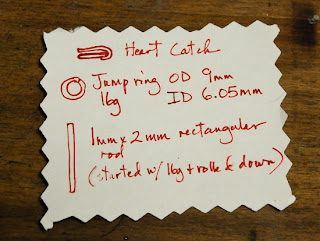 Heart Catch
Jump ring OD 9mm
16g ID 6.05mm
1mm x 2mm rectangular
rod
(started w/ 16g + rolled down)